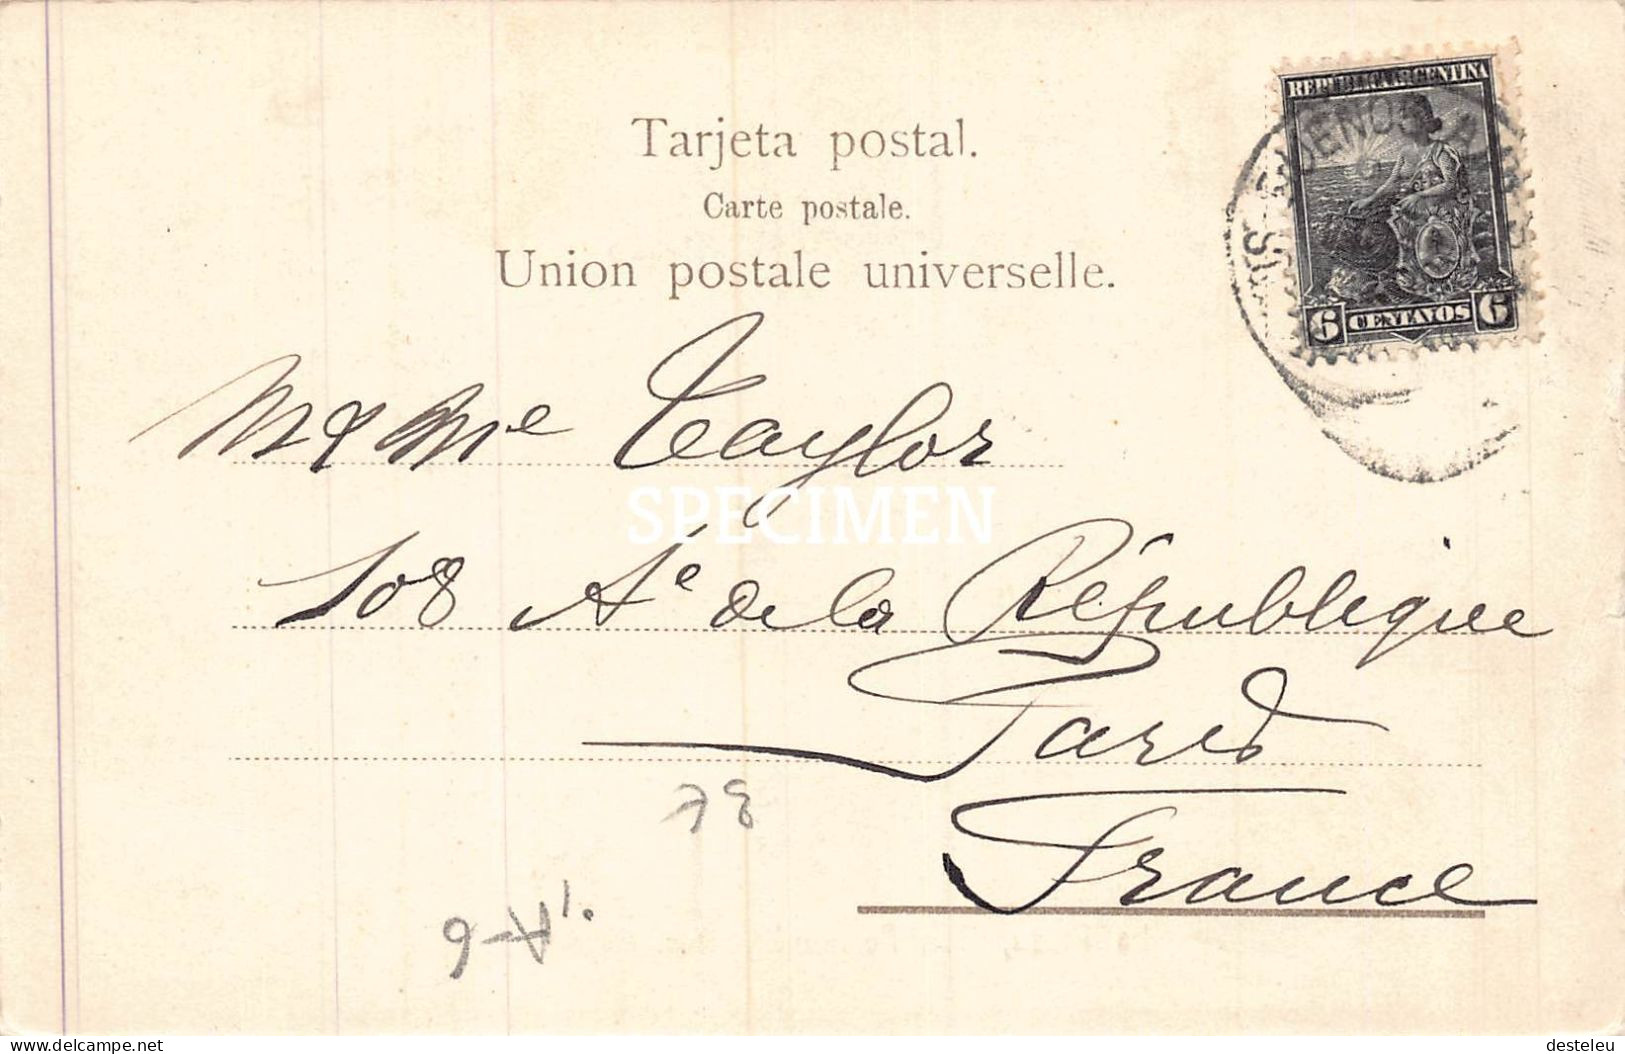 REPUBLICA ARGENTINA
BUENOS AIRES
6 CENTAVOS 6
Tarjeta postal.
Carte postale.
Union postale universelle.
M & Mme Taylor
SPECIMEN
108 Ae de la République
Paris
France
delcampe.net
desteleu